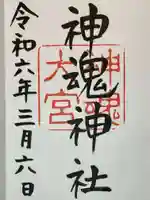 神魂神社
令和六年三月六日
神魂
大宮